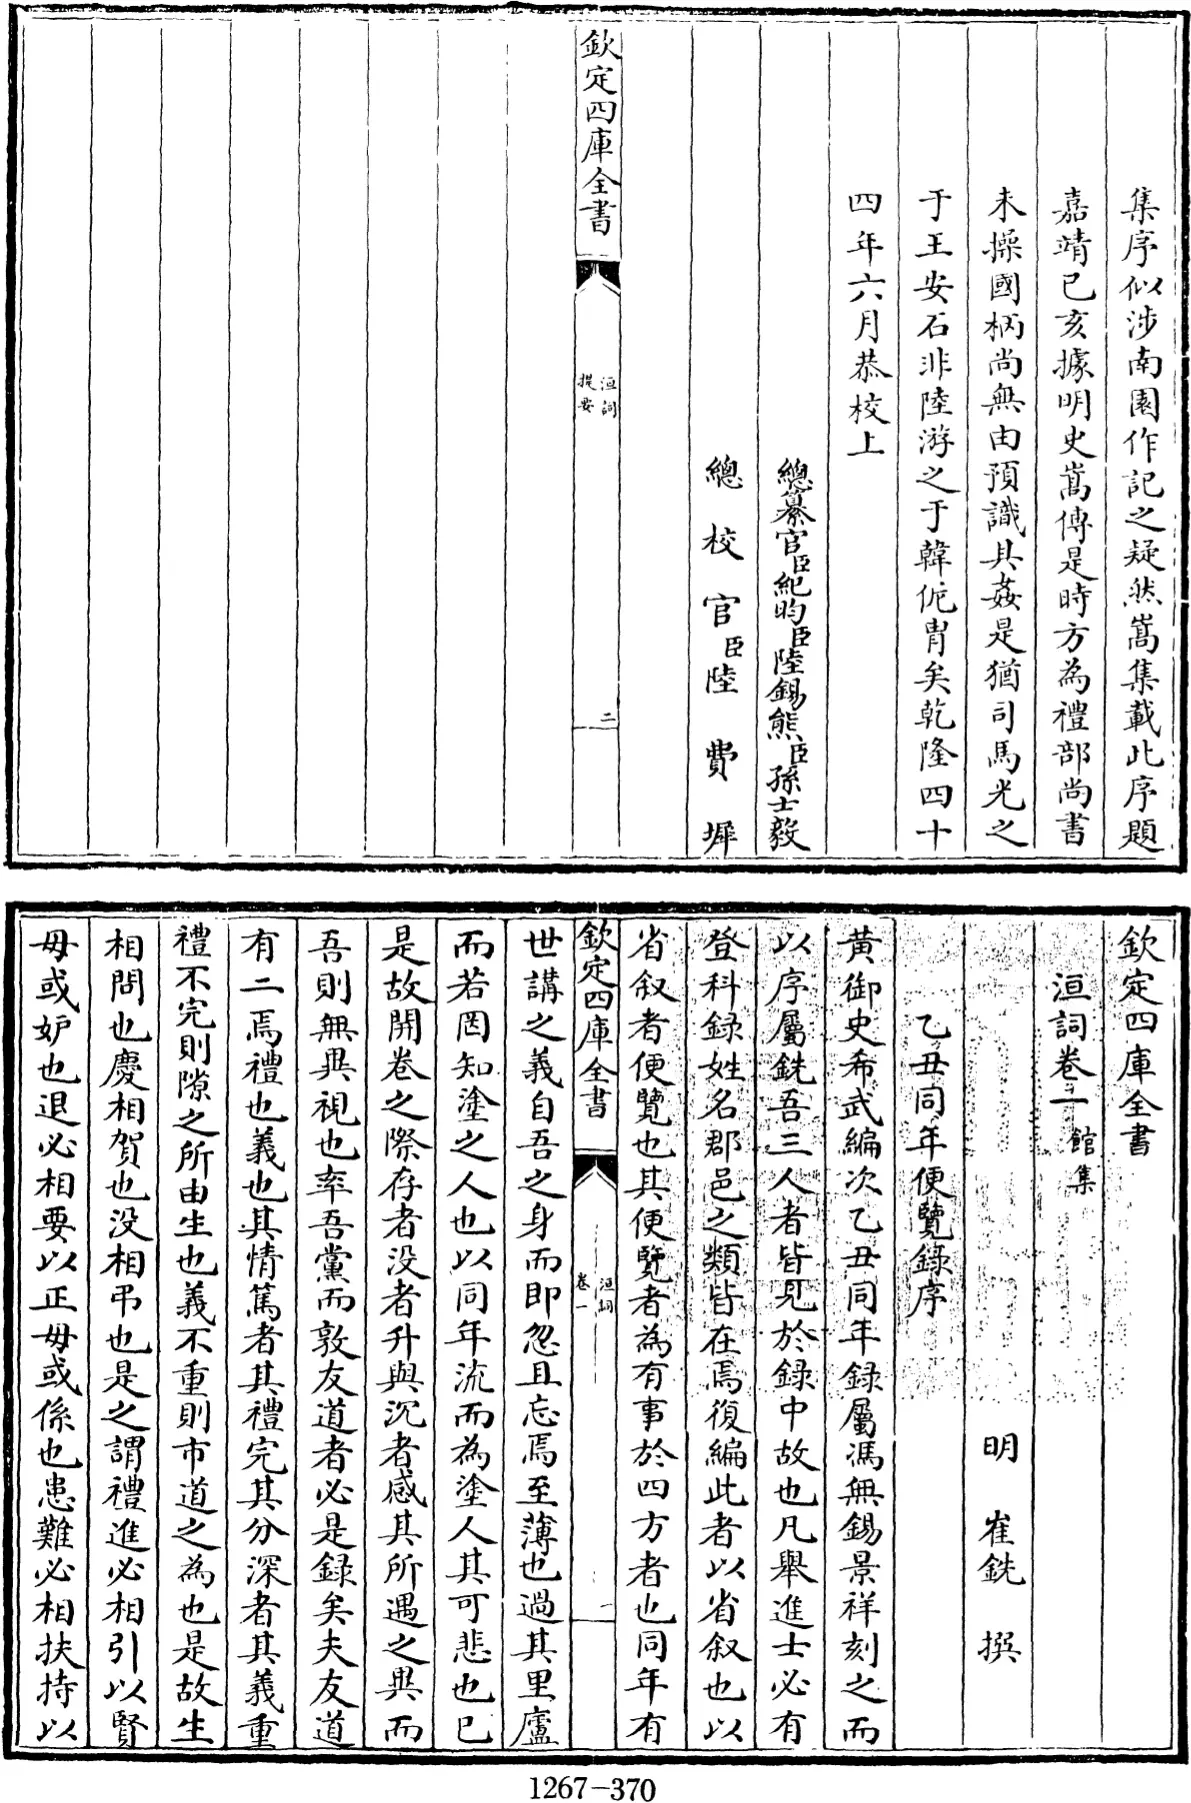 集序似涉南園作記之疑然嵩集載此序題
嘉靖己亥據明史嵩傳是時方為禮部尚書
未操國柄尚無由預識其姦是猶司馬光之
于王安石非陸游之于韓侂胄矣乾隆四十
四年六月恭校上
總纂官臣紀昀臣陸錫熊臣孫士毅
總校官臣陸費墀
欽定四庫全書
洹詞
提要
二
欽定四庫全書
洹詞卷一 館集
明 崔銑 撰
乙丑同年便覽錄序
黃御史希武編次乙丑同年録屬馮無錫景祥刻之而
以序屬銑吾三人者皆見於録中故也凡舉進士必有
登科録姓名郡邑之類皆在焉復編此者以省叙也以
省叙者便覽也其便覽者為有事於四方者也同年有
欽定四庫全書
洹詞
卷一
一
世講之義自吾之身而即忽且忘焉至薄也過其里廬
而若罔知塗之人也以同年流而為塗人其可悲也已
是故開卷之際存者没者升與沉者感其所遇之異而
吾則無異視也率吾黨而敦友道者必是録矣夫友道
有二焉禮也義也其情篤者其禮完其分深者其義重
禮不完則隙之所由生也義不重則市道之為也是故生
相問也慶相賀也没相弔也是之謂禮進必相引以賢
毋或妒也退必相要以正毋或係也患難必相扶持以
1267-370